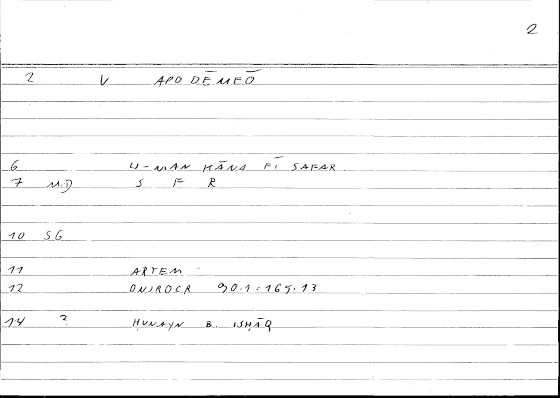 2
2 V APODĒMEŌ
6 U-MAN KĀNA FĪ SAFAR
7 MD S F R
10 SG
11 ARTEM
12 ONIROCR 90.1:165.13
14 ? ḤUNAYN B. ISḤĀQ